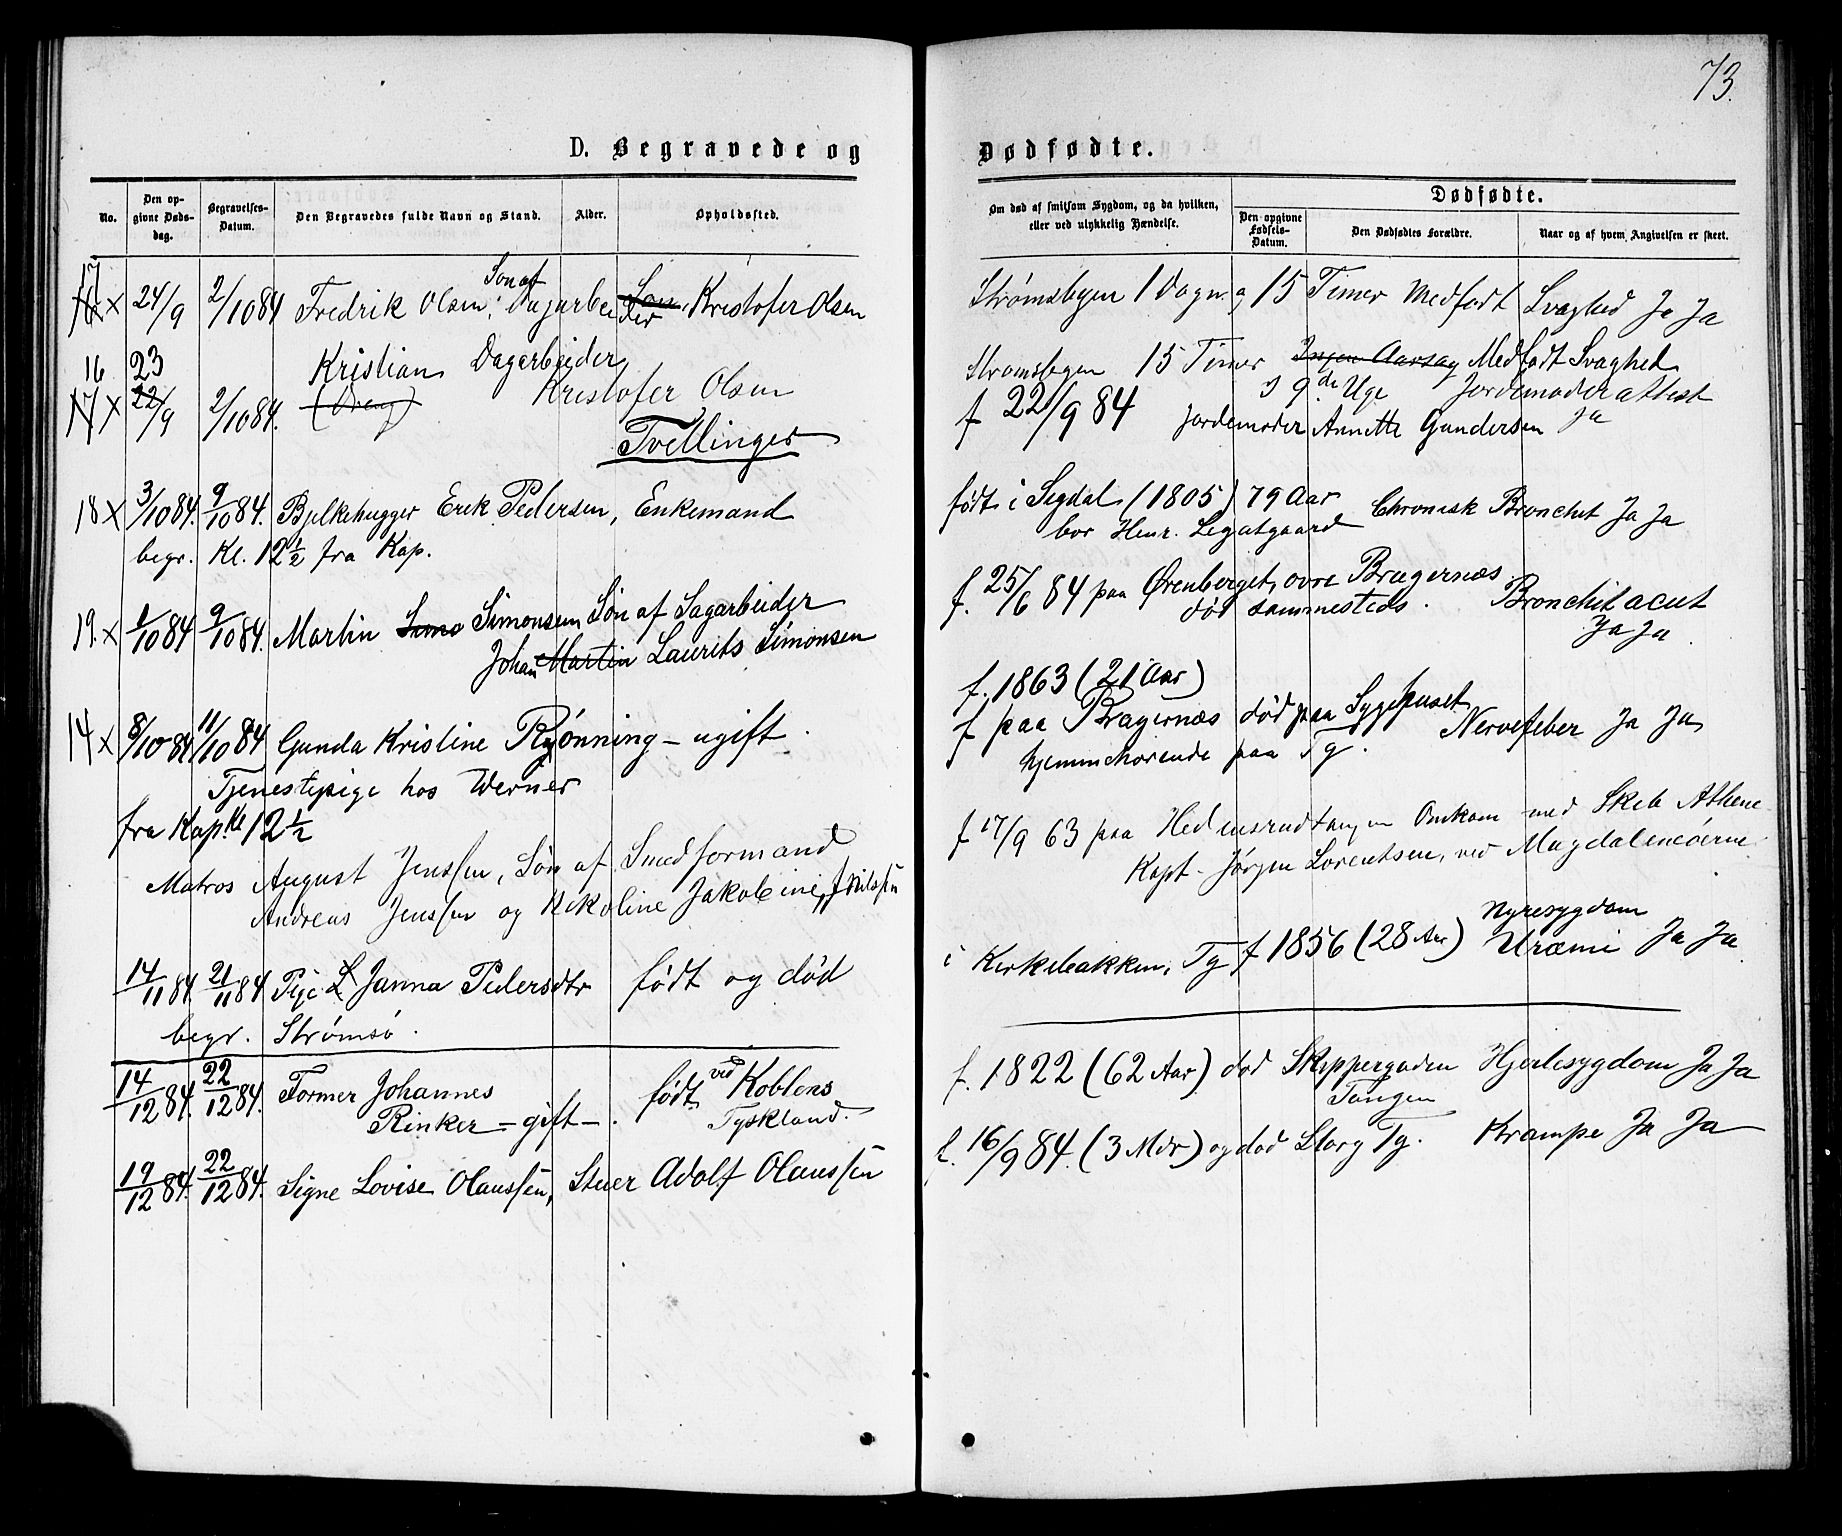 73.
D. Begravede og Dødfødte.
No.
Den opgivne Dødsdag.
Begravelses-Datum.
Den Begravedes fulde Navn og Stand.
Alder.
Opholdssted.
Om død af smitsom Sygdom, og da hvilken, eller ved ulykkelig Hændelse.
Dødfødte.
Den opgivne Fødsels-Datum.
Den Dødfødtes Forældre.
Naar og af hvem Angivelsen er skeet.
Søn af
17 x 24/9 2/10 84 Fredrik Olsen; Dagarbeider Søn Kristofer Olsen
Strømsbyen 1 Dag og 15 Timer Medfødt Svaghed Ja Ja
16 23 Kristian Dagarbeider
17 x 22/9 2/10 84. (Dreng) Kristofer Olsen
Tvillinger
Strømsbyen 15 Timer Ingen Aarsag Medfødt Svaghed
9de Uge Jordemoderattest
f 22/9 84 Jordemoder Annette Gundersen ja
18 x 3/10 84. 9/10 84. Bjelkehugger Erek Pedersen, Enkemand
begr. Kl. 12 1/2 fra Kap.
født i Sigdal (1805) 79 Aar Chronisk Bronchit Ja Ja
bor Henr. Legatgaard
19. x 1/10 84 9/10 84. Martin Simo Simonsen Søn af Sagarbeider
Johan Martin Laurits Simonsen
f. 25/6 84 paa Ørenberget, øvre Bragernæs
død sammesteds. Bronchit acut
Ja Ja.
14 x 8/10 84 11/10 84 Gunda Kristine Rønning - ugift.
Tjenestepige hos Werner
fra Kap. Kl 12 1/2
f. 1863 (21 Aar)
f paa Bragernæs død paa Sygehuset
hjemmehørende paa Tg. Nervefeber Ja Ja
Matros August Jenssen, Søn af Smedformand
Andreas Jenssen og Nikoline Jakobine f. Nilssen
f 17/9 63 paa Hedensrudtangen Omkom med Skib Athene
Kapt. Jørgen Lorentsen, ved Magdalenaøerne.
14/11 84 21/11 84 Pige L Janna Pedersdtr født og død
begr. Strømsø.
i Kirkebakken, Tg f 1856 (28 Aar) Nyresygdom
Uræmi Ja Ja.
14/12 84. 22/12 84. Former Johannes
Rinker - gift -. født ved Koblens
Tyskland.
f. 1822 (62 Aar) død Skippergaden Hjertesygdom Ja Ja
Tangen
19/12 84. 22/12 84. Signe Lovise Olaussen, Stuer Adolf Olaussen
f. 16/9 84. (3 Mdr) og død Storg Tg. Krampe Ja Ja